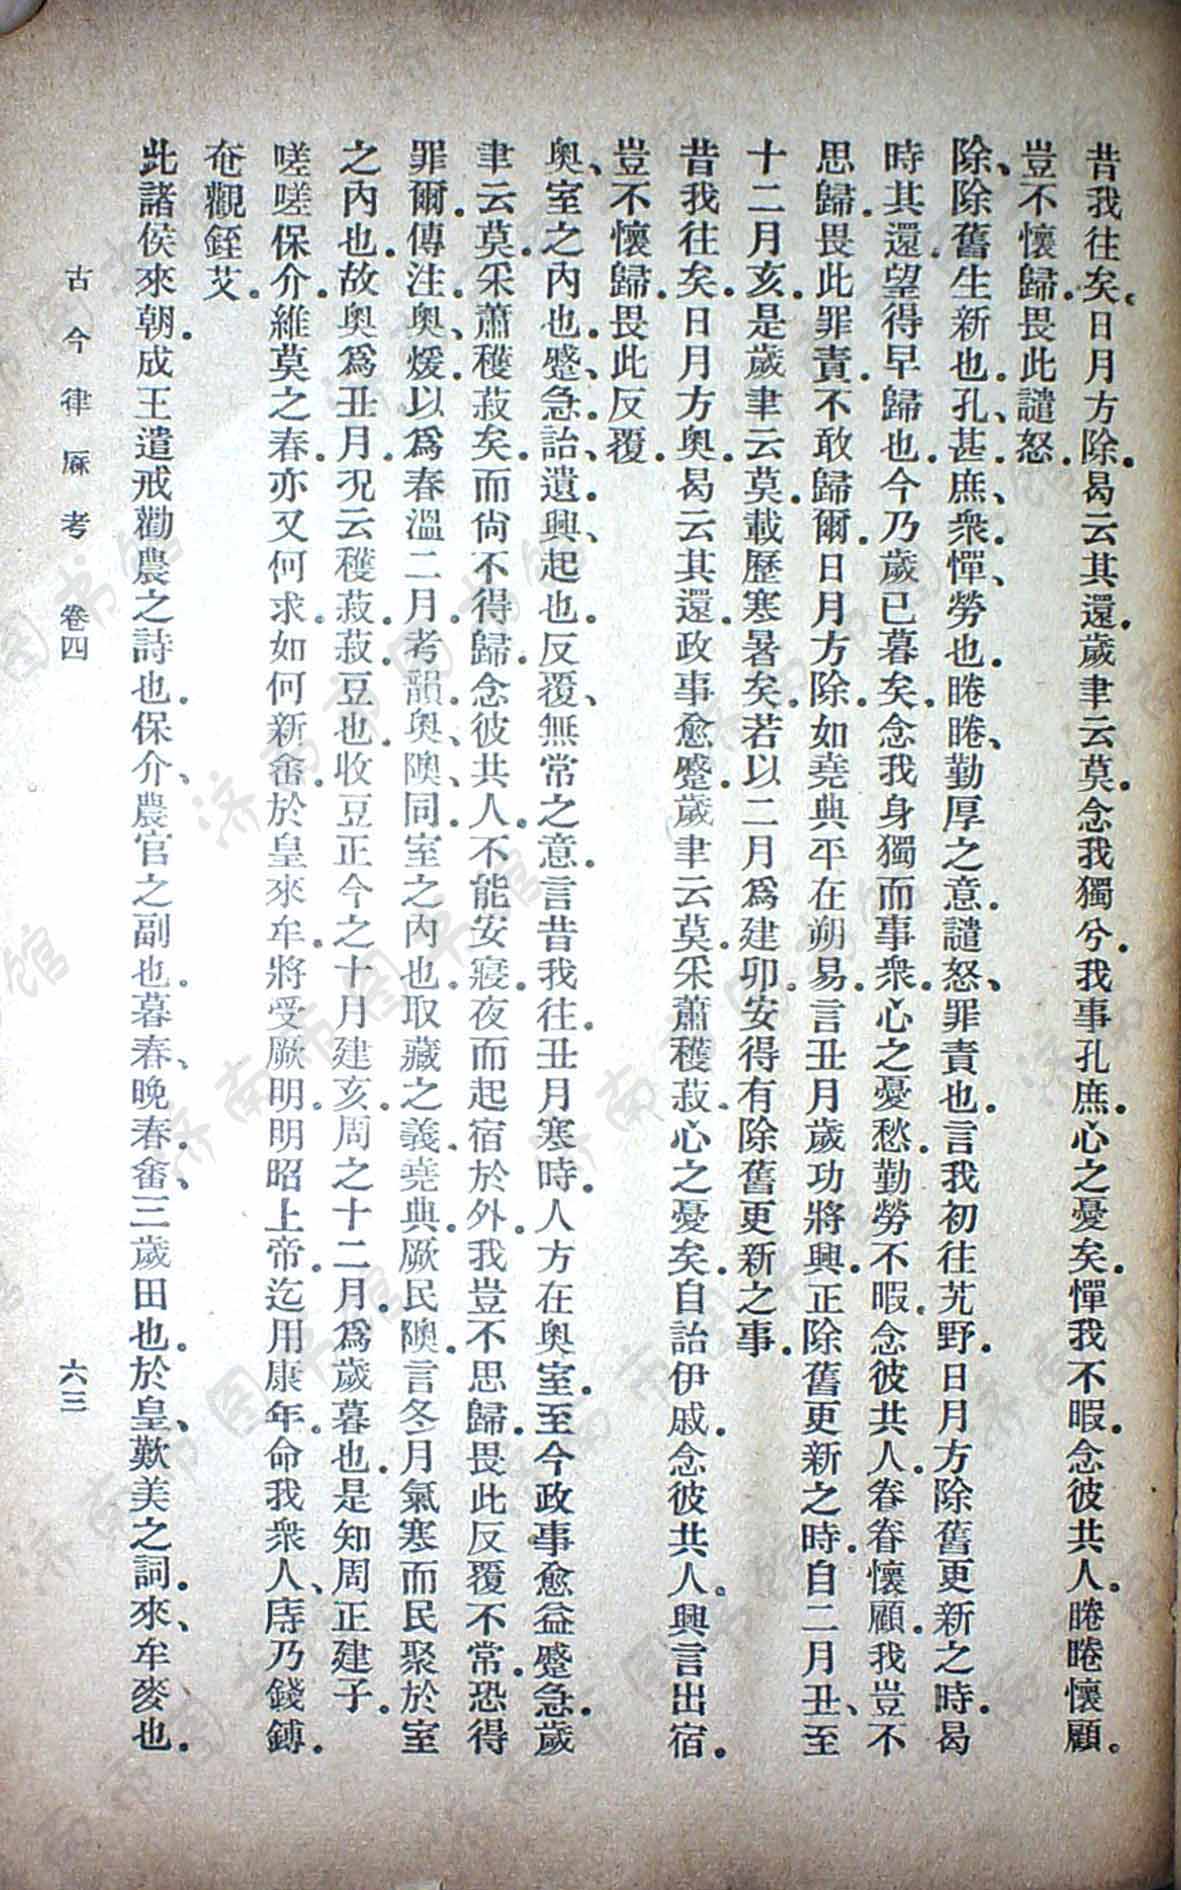 昔我往矣。日月方除。曷云其還。歲聿云莫。念我獨兮。我事孔庶。心之憂矣。憚我不暇。念彼共人。睠睠懷顧。
豈不懷歸。畏此譴怒。
除、除舊生新也。孔、甚。庶、衆。憚、勞也。睠睠、勤厚之意。譴怒、罪責也。言我初往艽野。日月方除舊更新之時。曷
時其還。望得早歸也。今乃歲已暮矣。念我身獨而事衆。心之憂愁。勤勞不暇。念彼共人。眷眷懷顧。我豈不
思歸。畏此罪責。不敢歸爾。日月方除。如堯典平在朔易。言丑月歲功將興。正除舊更新之時。自二月丑、至
十二月亥。是歲聿云莫。載歷寒暑矣。若以二月爲建卯。安得有除舊更新之事。
昔我往矣。日月方奧。曷云其還。政事愈蹙。歲聿云莫。采蕭穫菽。心之憂矣。自詒伊戚。念彼共人。興言出宿。
豈不懷歸。畏此反覆。
奧、室之內也。蹙、急。詒、遺。興、起也。反覆、無常之意。言昔我往。丑月寒時。人方在奧室。至今政事愈益蹙急。歲
聿云莫。采蕭穫菽矣。而尙不得歸。念彼共人。不能安寢。夜而起宿於外。我豈不思歸。畏此反覆不常。恐得
罪爾。傳注。奧、煖。以爲春溫二月。考韻。奧、隩、同室之內也。取藏之義。堯典。厥民隩。言冬月氣寒而民聚於室
之內也。故奧爲丑月。況云穫菽。菽、豆也。收豆正今之十月建亥。周之十二月。爲歲暮也。是知周正建子。
嗟嗟保介。維莫之春。亦又何求。如何新畬。於皇來牟。將受厥明。明昭上帝。迄用康年。命我衆人、庤乃錢鎛。
奄觀銍艾。
此諸侯來朝。成王遣戒勸農之詩也。保介、農官之副也。暮春、晚春。畬、三歲田也。於皇、歎美之詞。來、牟麥也。
古今律厤考 卷四 六三